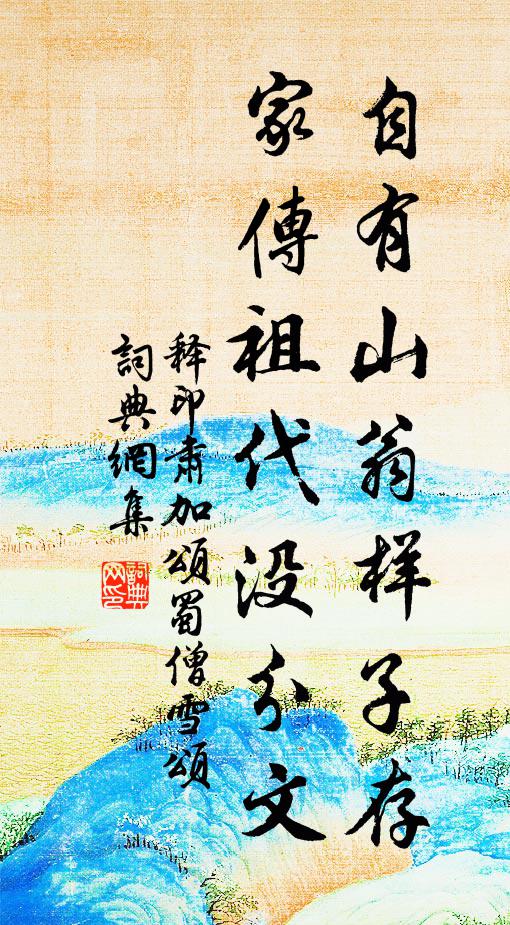 自有山翁样子存
家傳祖代没分文
释印肃加頌蜀僧雪頌
詞典網集
詞典网印